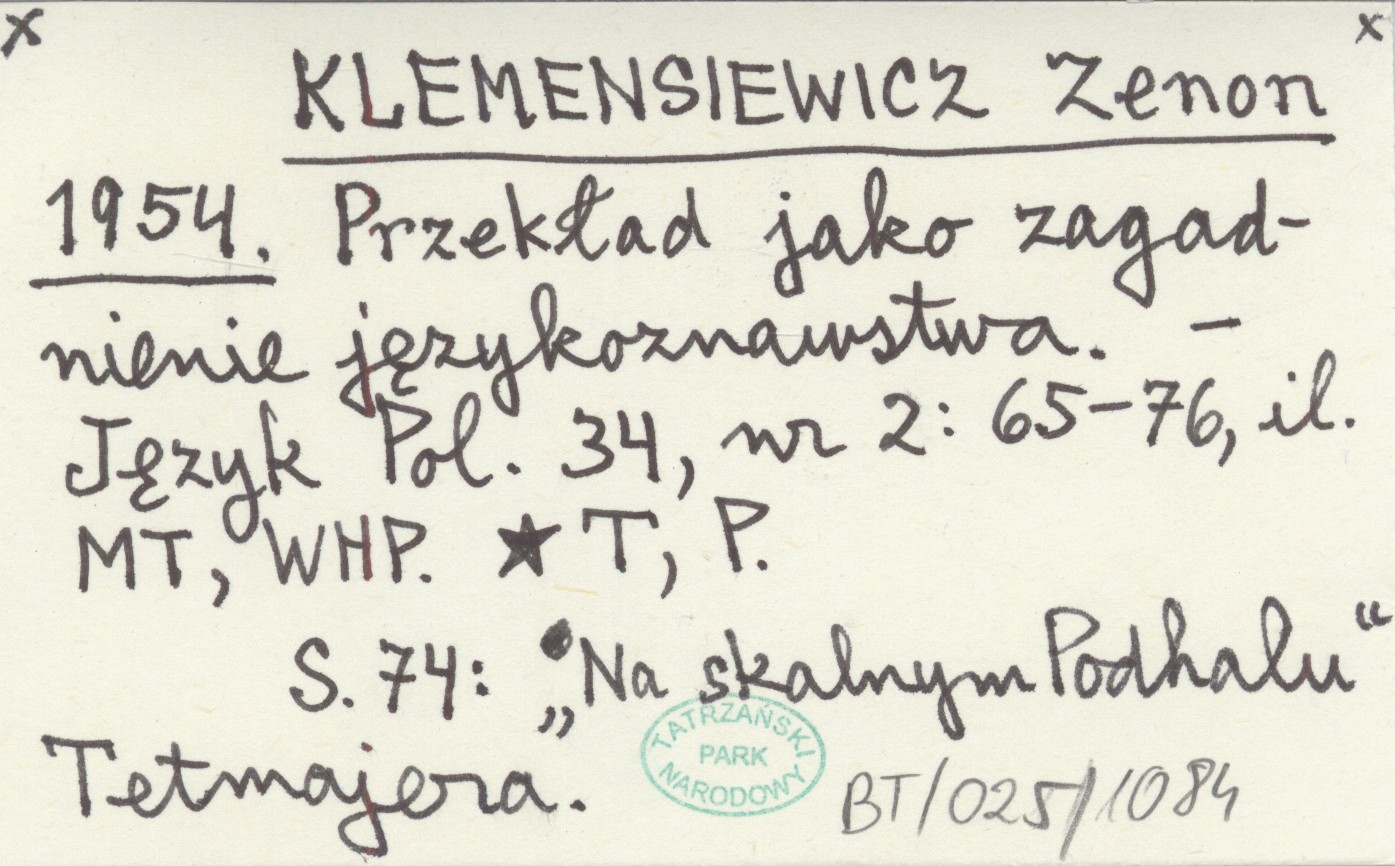 x x
KLEMENSIEWICZ Zenon
1954. Przekład jako zagad-
nienie językoznawstwa. –
Język Pol. 34, nr 2: 65–76, il.
MT, WHP. ★ T, P.
S. 74: „Na skalnym Podhalu“
Tetmajera.
TATRZAŃSKI
PARK
NARODOWY
BT/025/1084